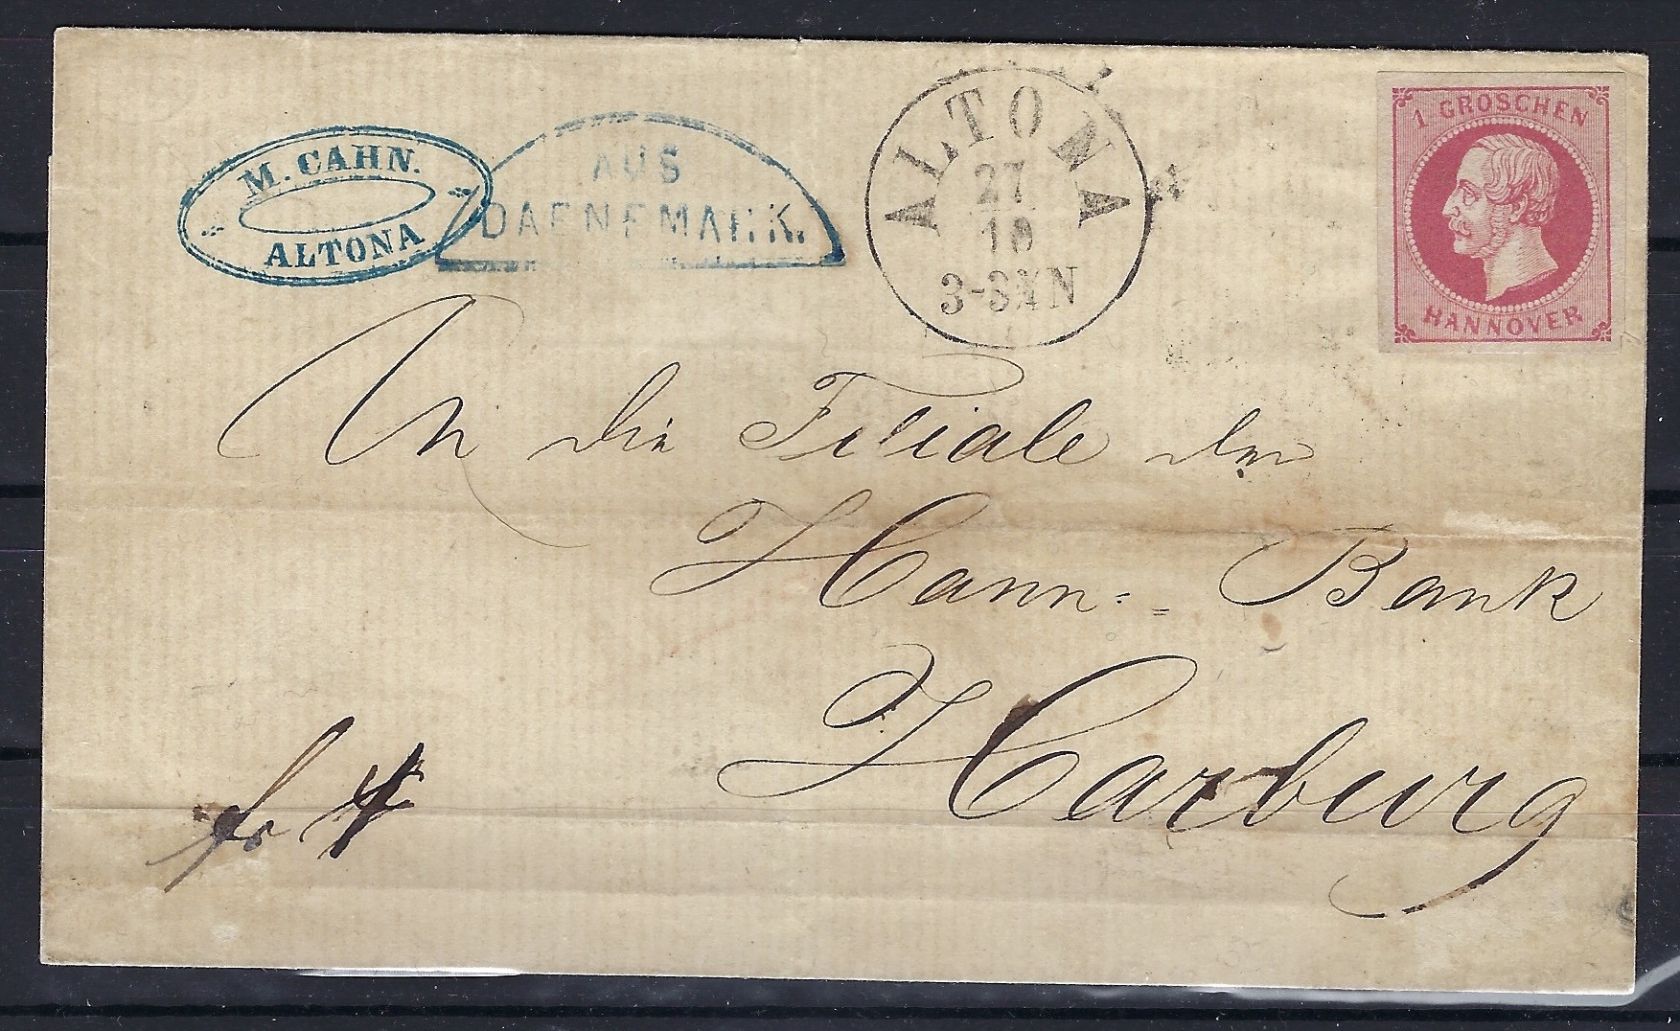 M. CAHN.
ALTONA
AUS
DAENEMARK.
ALTONA
27
10
3-
1 GROSCHEN
HANNOVER
An die Filiale der
Hann: Bank
Harburg
fr